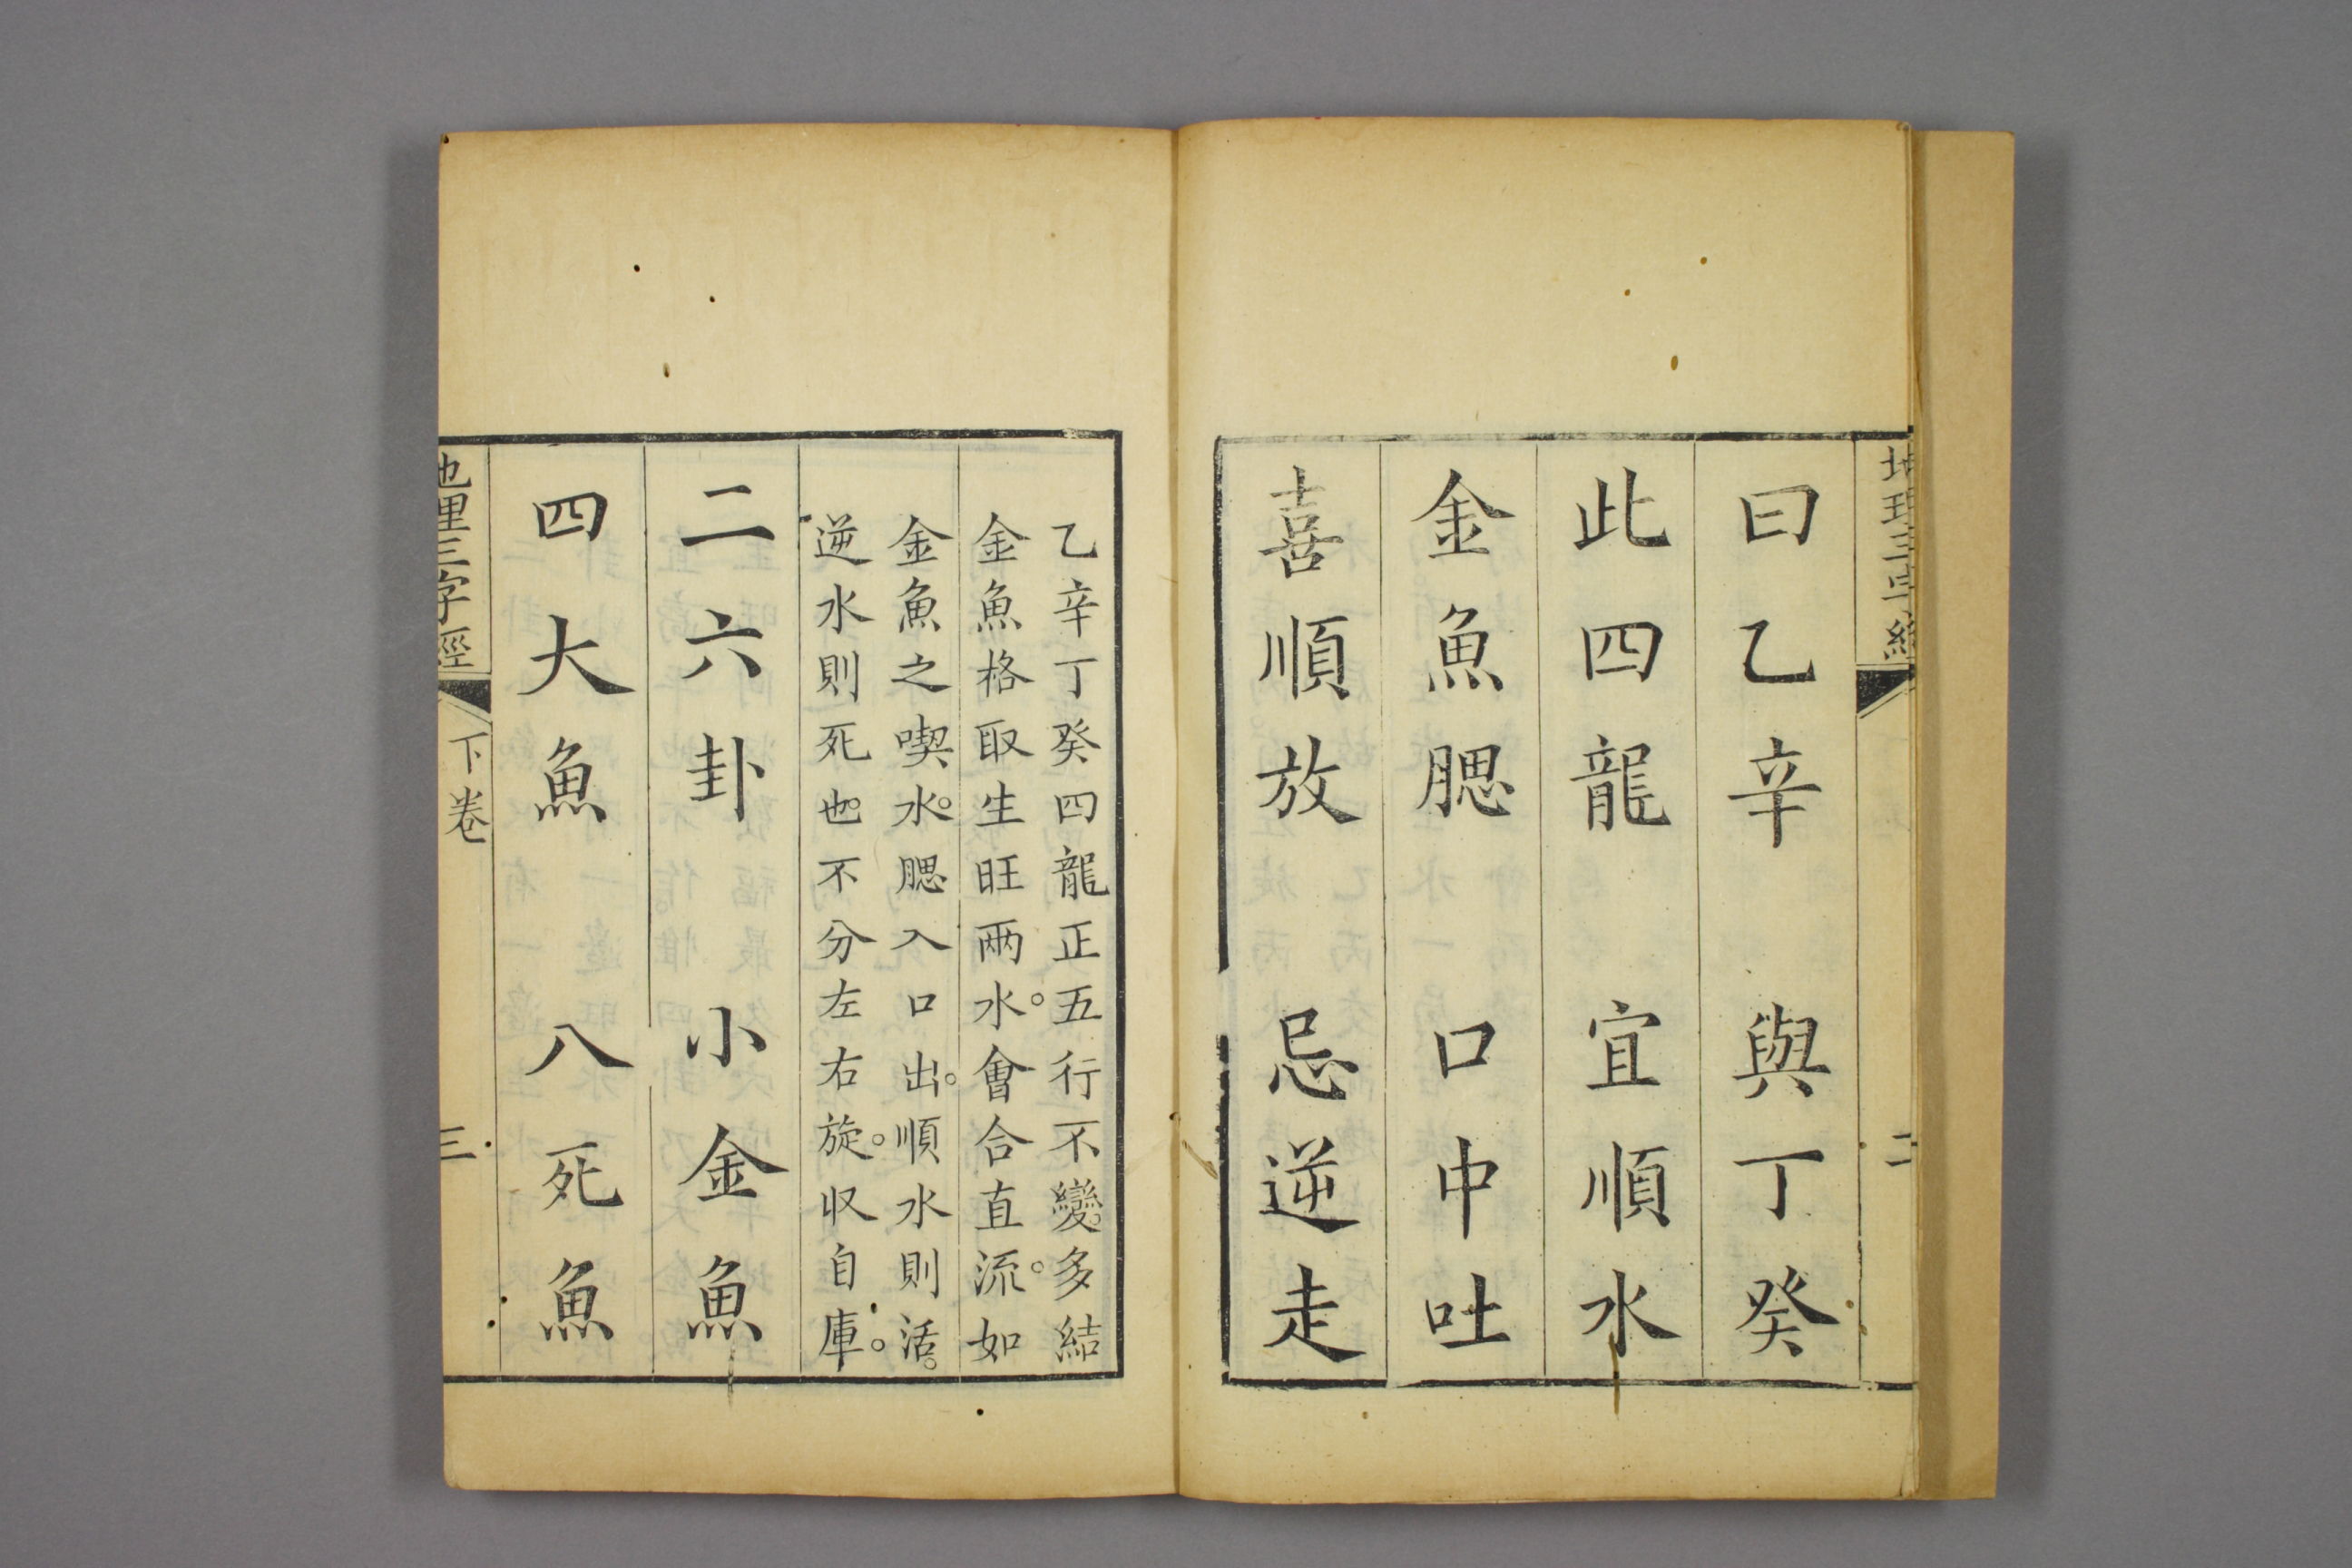 地理三字經 二
曰乙辛 與丁癸
此四龍 宜順水
金魚腮 口中吐
喜順放 忌逆走
乙辛丁癸四龍正五行不變。多結
金魚格取生旺兩水。會合直流。如
金魚之喫水。腮入口出。順水則活。
逆水則死也。不分左右旋。収自庫。
二六卦 小金魚
四大魚 八死魚
地理三字經 下卷 三